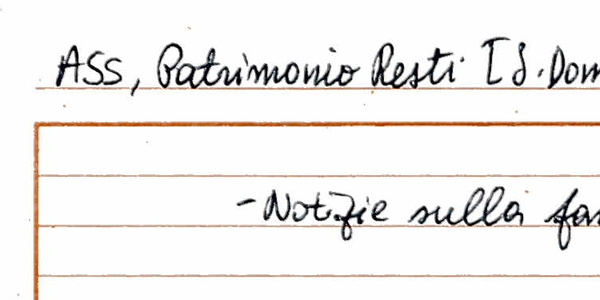 ASS, Patrimonio Resti [S. Dom
- Notizie sulla fa